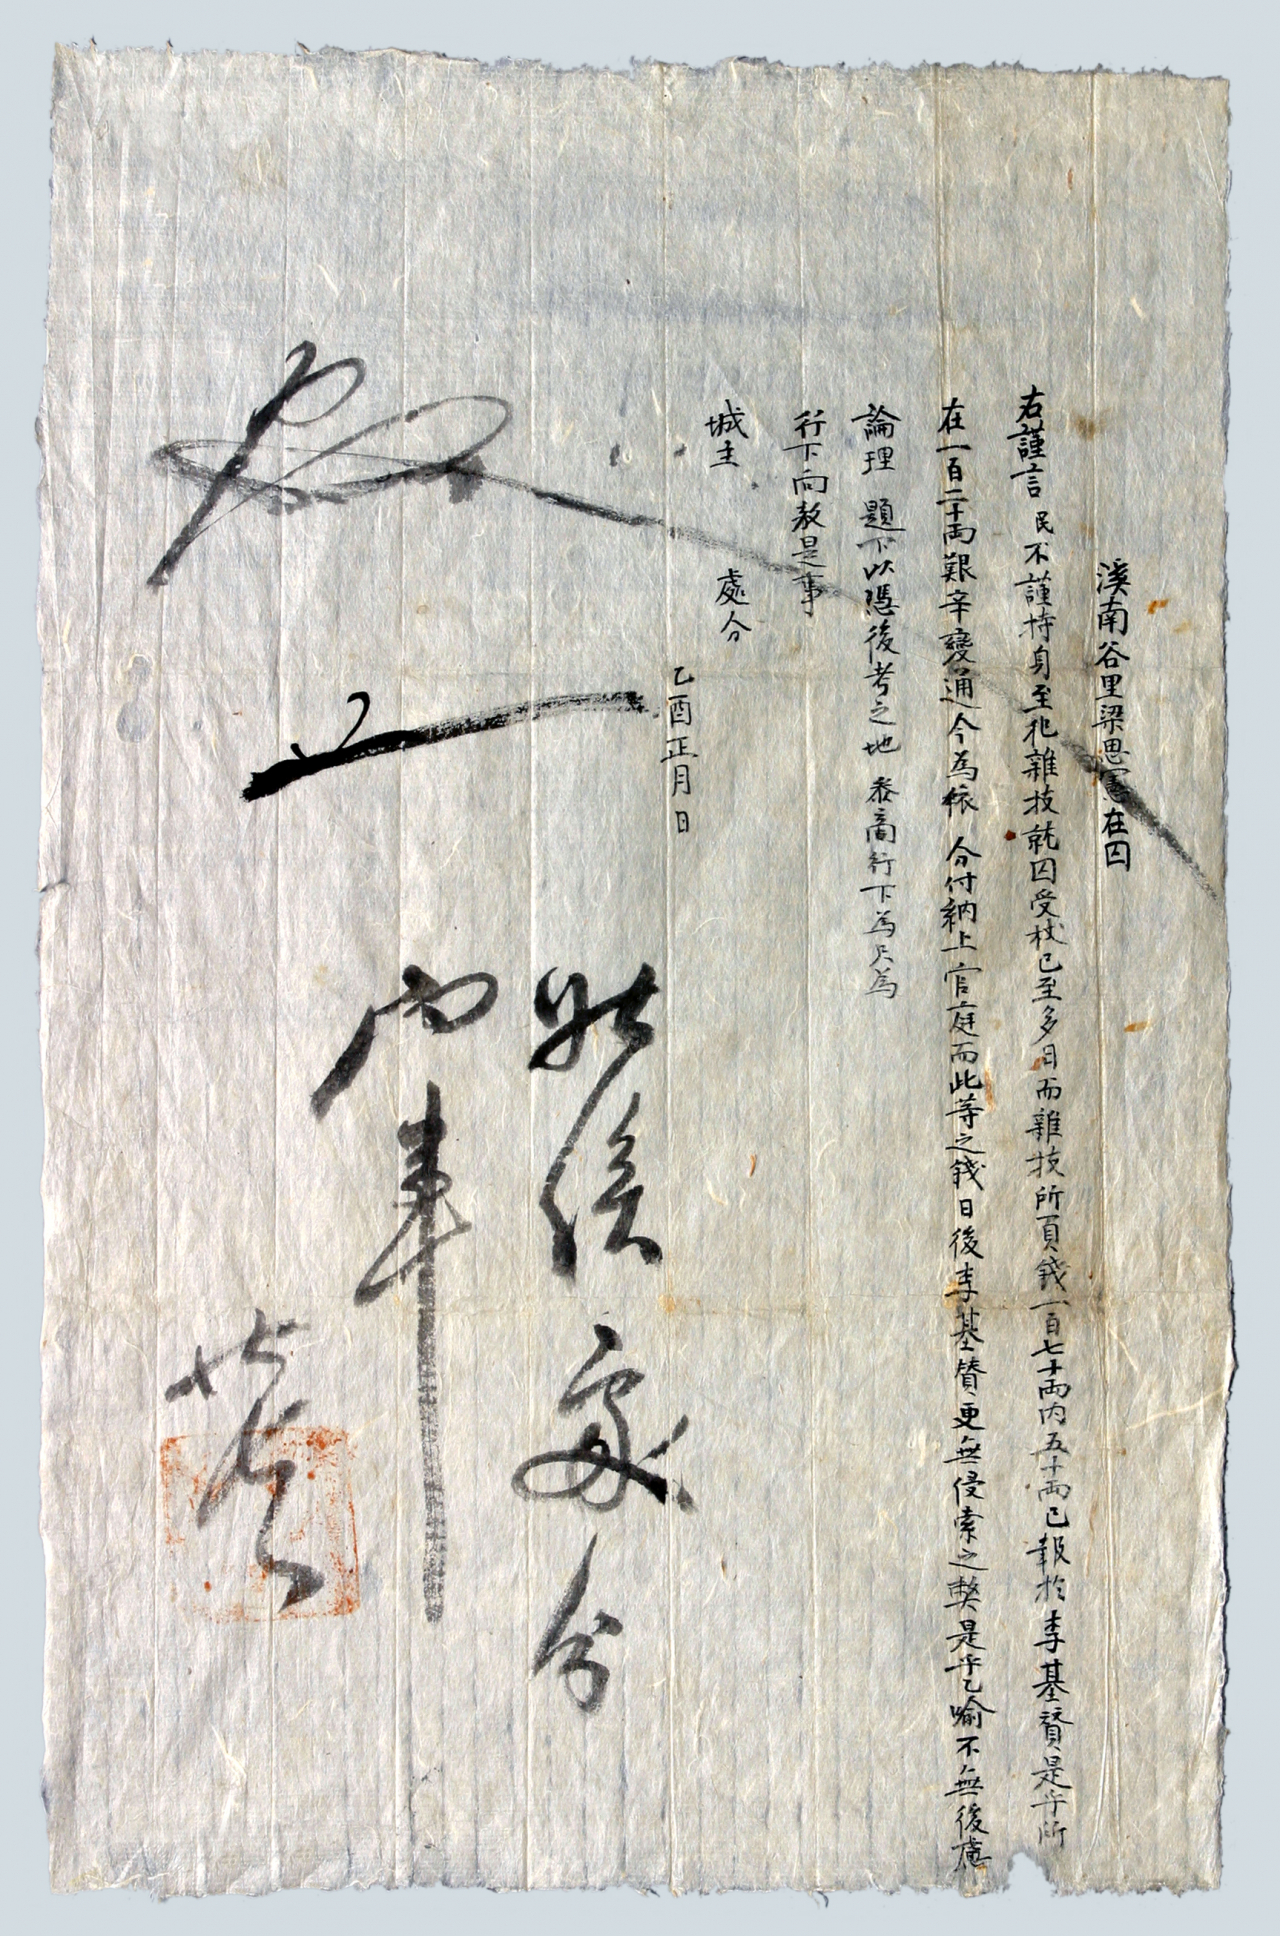 溪南谷里梁思憲在囚
右謹言民不謹持身至犯雜技就囚受杖已至多日而雜技所負錢一百七十兩內五十兩已報於李基贊是乎所
在一百二十兩艱辛變通今為依 分付納上官庭而此等之錢日後李基贊更無侵索之弊是乎乙喻不無後慮
論理 題下以憑後考之地 叅商行下為只為
行下向敎是事
城主 處分
乙酉正月日
以俟處分
向事